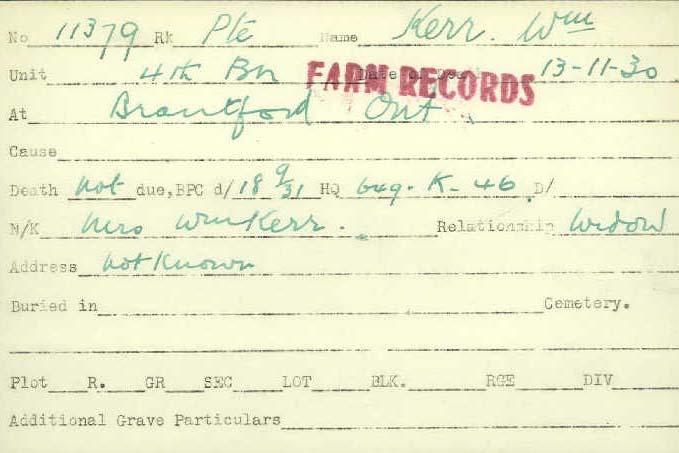 No 11379 Rk Pte Name Kerr. Wm
Unit 4th Bn Date of Dea 13-11-30
FARM RECORDS
At Brantford Ont.
Cause
Death not due, BPC d/ 18 9/31 HQ 649-K-46 D/
N/K Mrs Wm Kerr. Relationship Widow
Address not Known
Buried in Cemetery.
Plot R. GR SEC LOT BLK. RGE DIV
Additional Grave Particulars